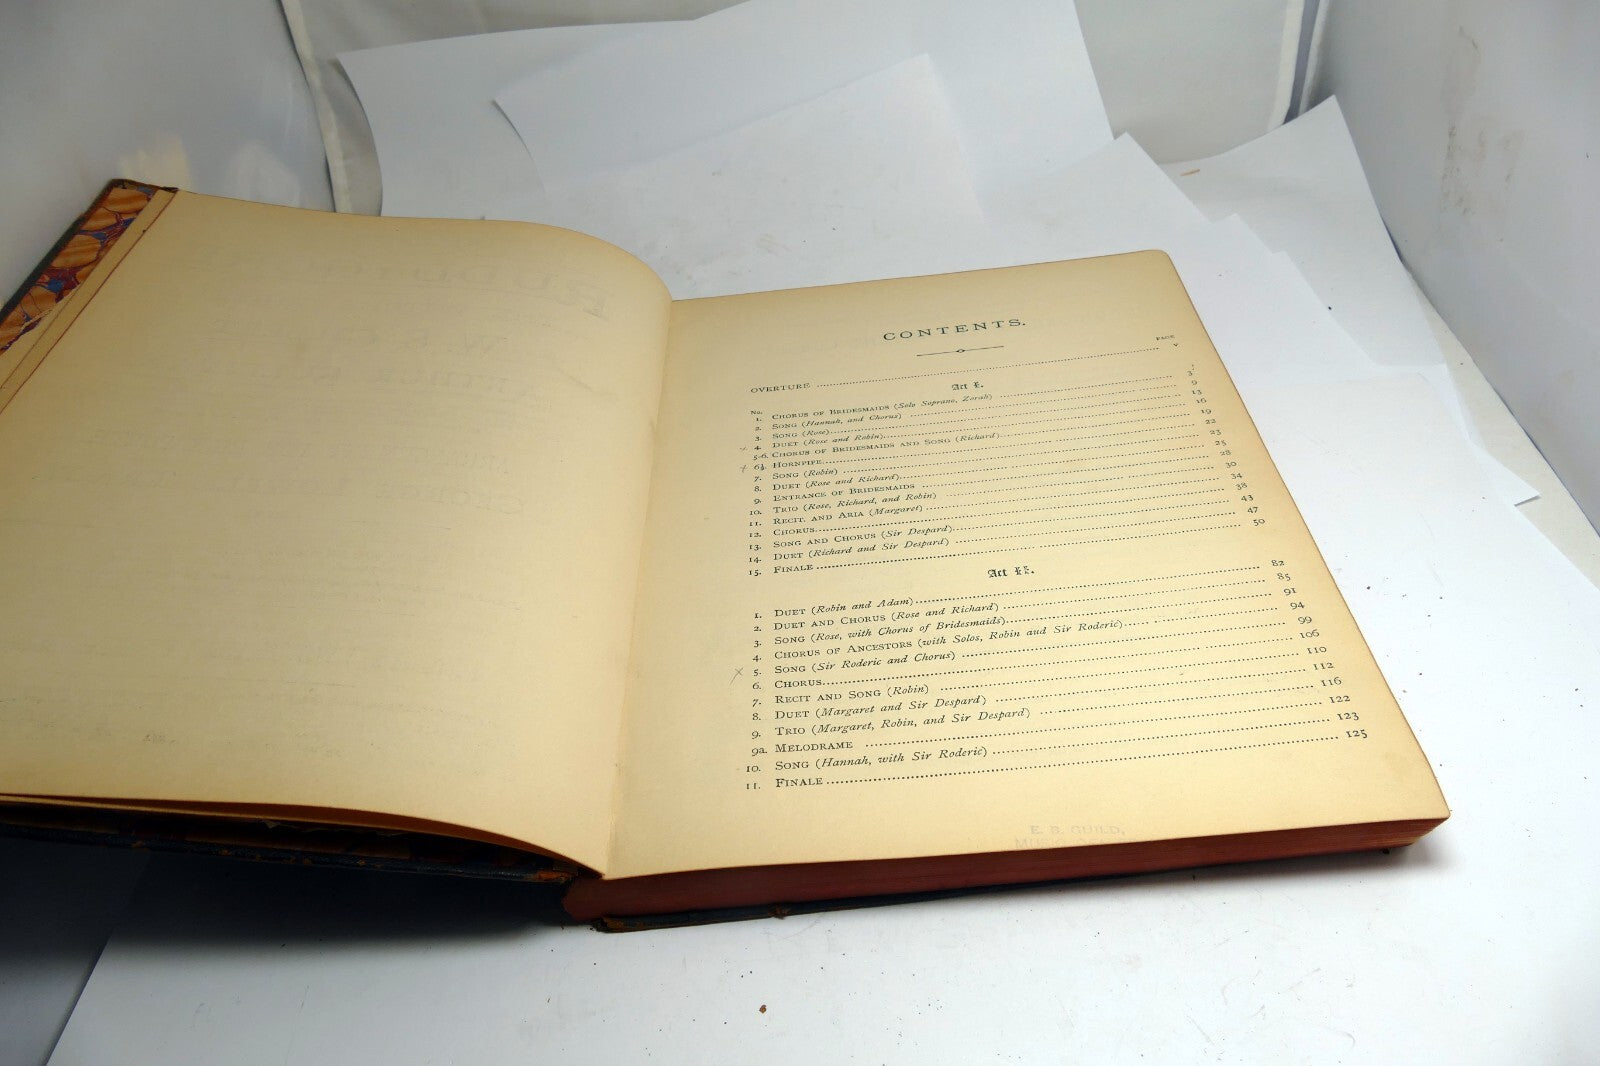 CONTENTS.
PAGE
OVERTURE v
Act I.
No.
1. CHORUS OF BRIDESMAIDS (Solo Soprano, Zorah) 3
2. SONG (Hannah, and Chorus) 9
3. SONG (Rose) 13
4. DUET (Rose and Robin) 16
5-6. CHORUS OF BRIDESMAIDS AND SONG (Richard) 19
6½. HORNPIPE 22
7. SONG (Robin) 23
8. DUET (Rose and Richard) 25
9. ENTRANCE OF BRIDESMAIDS 28
10. TRIO (Rose, Richard, and Robin) 30
11. RECIT. AND ARIA (Margaret) 34
12. CHORUS 38
13. SONG AND CHORUS (Sir Despard) 43
14. DUET (Richard and Sir Despard) 47
15. FINALE 50
Act II.
1. DUET (Robin and Adam) 82
2. DUET AND CHORUS (Rose and Richard) 85
3. SONG (Rose, with Chorus of Bridesmaids) 91
4. CHORUS OF ANCESTORS (with Solos, Robin and Sir Roderic) 94
5. SONG (Sir Roderic and Chorus) 99
6. CHORUS 106
7. RECIT AND SONG (Robin) 110
8. DUET (Margaret and Sir Despard) 112
9. TRIO (Margaret, Robin, and Sir Despard) 116
9a. MELODRAME 122
10. SONG (Hannah, with Sir Roderic) 123
11. FINALE 125
E. B. GUILD,